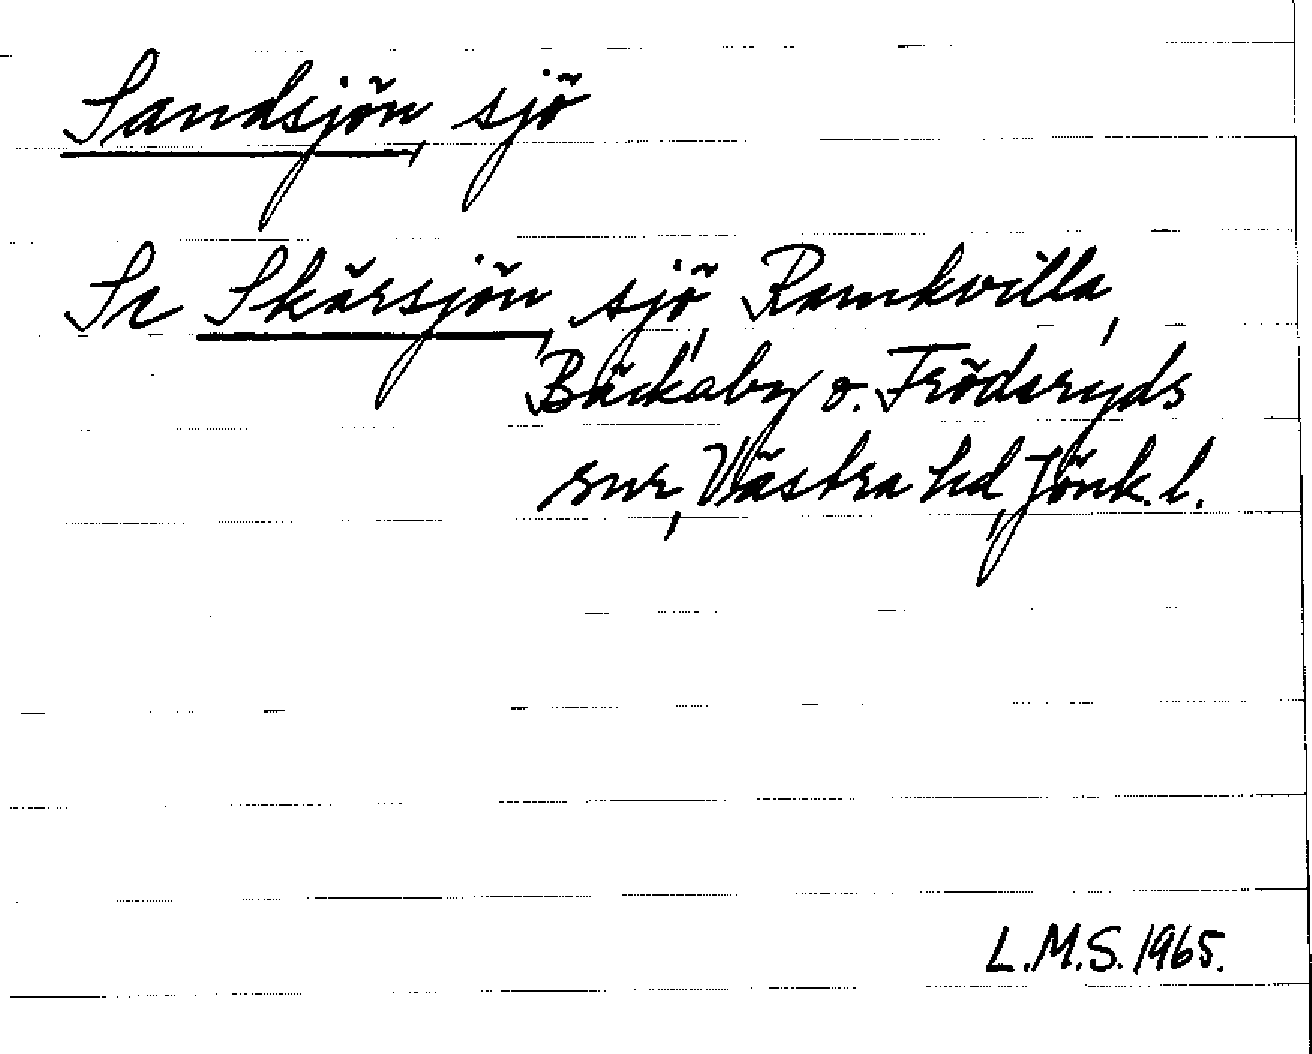 Sandsjön, sjö
Se Skärsjön, sjö, Ramkvilla,
Bäckaby o. Fröderyds
snr, Västra hd, Jönk. l.
L.M.S. 1965.